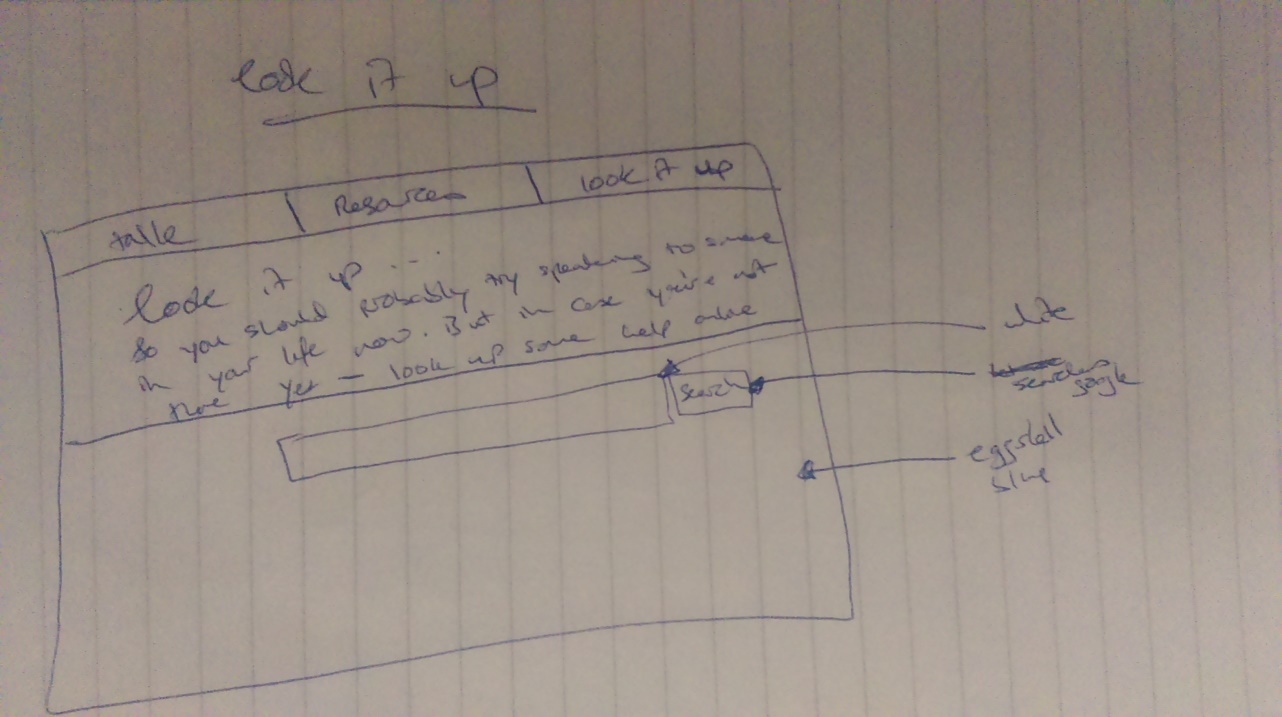 look it up
talk
Resources
look it up
look it up ...
So you should probably try speaking to someone
in your life now. But in case you're not
there yet – look up some help online
search
white
searches
google
eggshell
blue